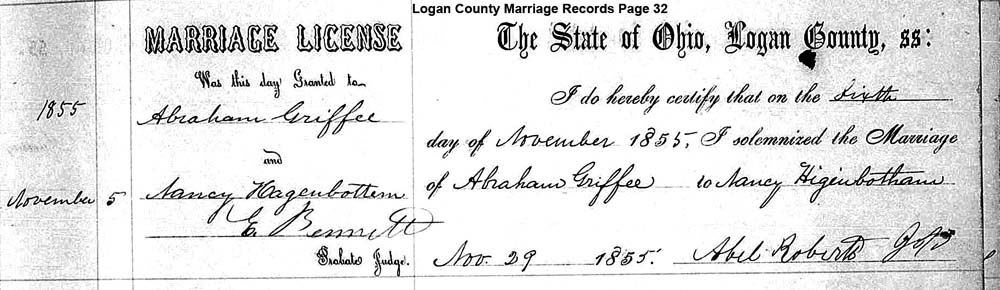 Logan County Marriage Records Page 32
MARRIAGE LICENSE
Was this day Granted to
1855
Abraham Griffee
and
November 5
Nancy Hagenbottem
E. Bennett
Probate Judge.
The State of Ohio, Logan County, ss:
I do hereby certify that on the Sixth
day of November 1855, I solemnized the Marriage
of Abraham Griffee to Nancy Higenbotham
Nov. 29 1855. Abel Roberts